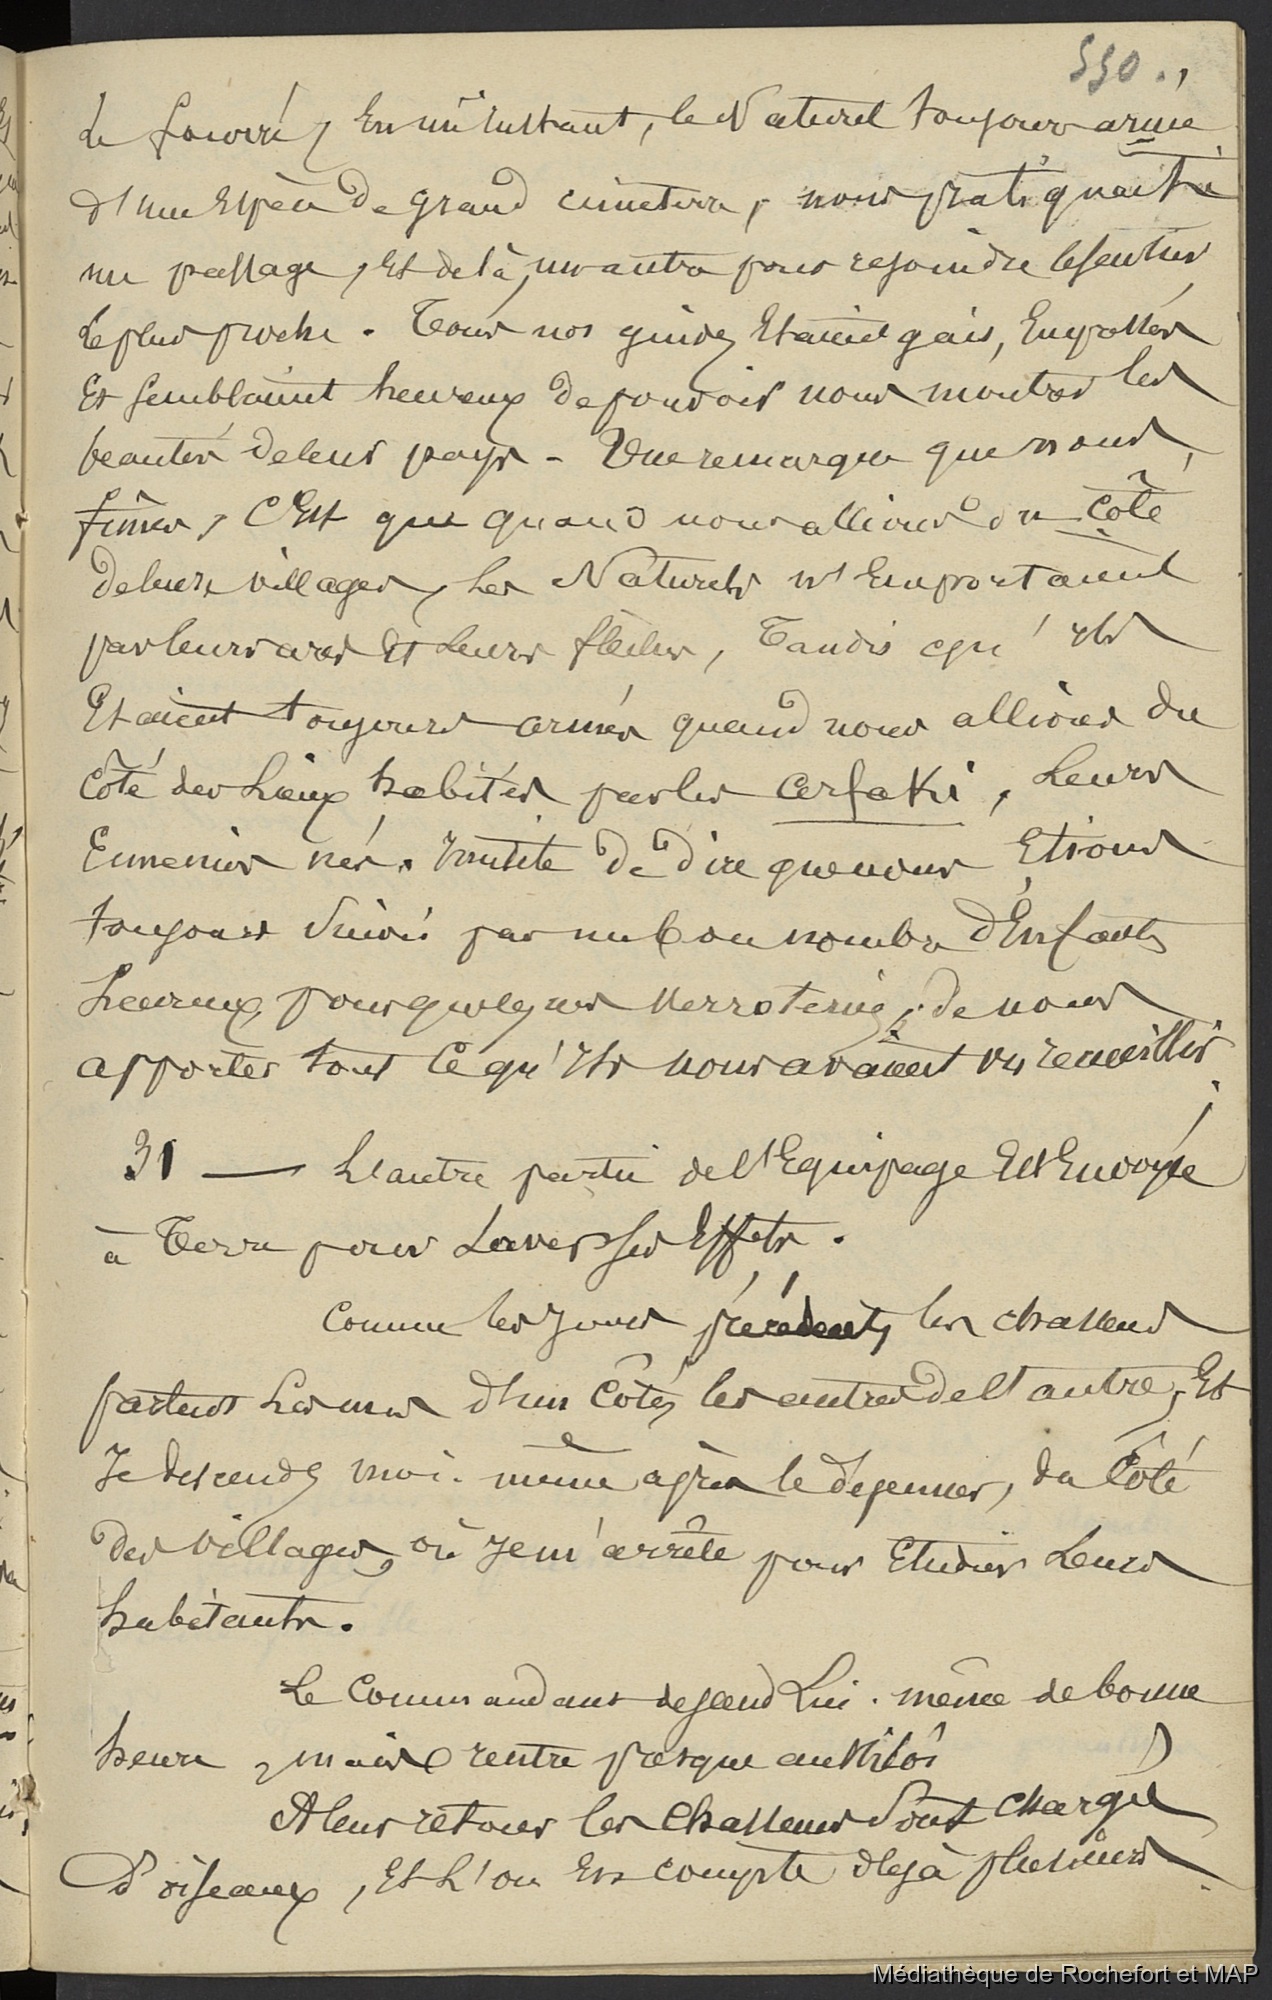 550.,
le fourré, En un instant, le Naturel toujours armé
d'une Espèce de grand cimeterre, nous pratiquait
un passage, Et de là, un autre pour rejoindre le sentier
le plus proche. Tous nos guides Etaient gais, Empressés
Et semblaient heureux de pouvoir nous montrer les
beautés de leur pays - Une remarque que nous
fîmes, C'Est que quand nous allions du côté
de leurs villages, les Naturels n'Emportaient
pas leurs arcs Et leurs flèches, Tandis qu'ils
Etaient toujours armés quand nous allions du
côté des Lieux habités par les Carfaki, Leurs
Ennemis nés. Inutile de dire que nous Etions
toujours suivis par un bon nombre d'Enfants
heureux, pour quelques verroteries, de nous
apporter tout ce qu'Ils nous avaient vu recueillir;
31 — L'autre partie de l'Equipage Est Envoyée
à Terre pour Laver ses Effets.
Comme les Jours précédents, les chasseurs
partent Les uns d'un côté, les autres de l'autre, Et
Je descends moi-même après le déjeuner, du Côté
des villages, où Je m'arrête pour Etudier Leurs
habitants.
Le Commandant descend Lui-même de bonne
heure, mais rentre presque aussitôt
A leur retour les Chasseurs sont chargés
D'oiseaux, Et L'on En compte déjà plusieurs
Médiathèque de Rochefort et MAP